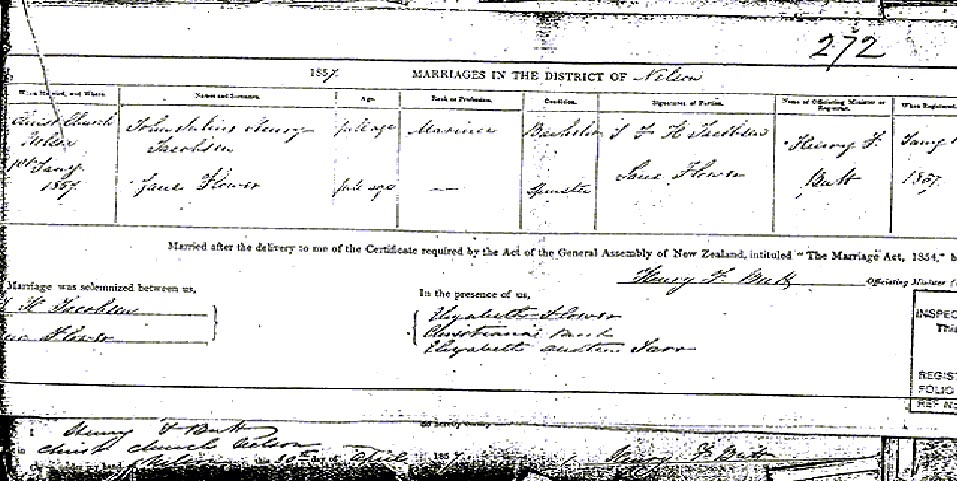 272
1857. MARRIAGES IN THE DISTRICT OF Nelson
When Married, and Where. Names and Surnames. Age. Rank or Profession. Condition. Signatures of Parties. Name of Officiating Minister or Registrar. When Registered.
Christ Church John Julius Henry full age Bachelor J H Jacobsen Henry F. Jany
Nelson Jacobsen
1st Jany Jane Flower full age — Spinster Jane Flower Butt 1857.
1857
Married after the delivery to me of the Certificate required by the Act of the General Assembly of New Zealand, intituled "The Marriage Act, 1854," b
Henry F. Butt Officiating Minister
Marriage was solemnized between us,
In the presence of us,
H Jacobsen
Flower
Elizabeth Flower
Christiana
Elizabeth Austin
INSPEC
This
REGIST
FOLIO
REF N
I Henry F Butt do hereby certify
in Christ Church Nelson
my hand 10th day of 1857. Henry F Butt